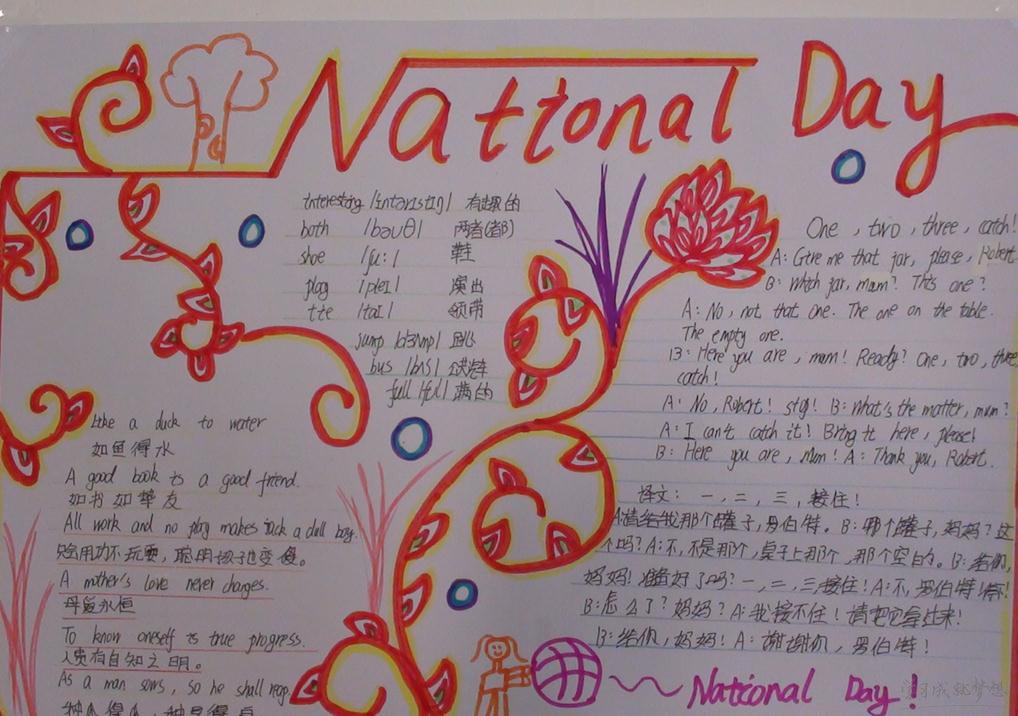 National Day
interesting /ɪntərɪstɪŋ/ 有趣的
both /bəuθ/ 两者(都)
shoe /ʃu:/ 鞋
play /pleɪ/ 演出
tie /taɪ/ 领带
jump /dʒʌmp/ 跳
bus /bʌs/
full /ful/ 满的
like a duck to water
如鱼得水
A good book is a good friend.
好书如挚友
All work and no play makes Jack a dull boy.
只会用功不玩耍，聪明孩子也变傻。
A mother's love never changes.
母爱永恒
To know oneself is true progress.
人贵有自知之明。
As a man sows, so he shall reap.
One, two, three, catch!
A: Give me that jar, please, Robert.
B: Which jar, mum? This one?
A: No, not that one. The one on the table.
The empty one.
B: Here you are, mum! Ready? One, two, three,
catch!
A: No, Robert! stop! B: What's the matter, mum?
A: I can't catch it! Bring it here, please!
B: Here you are, mum! A: Thank you, Robert.
译文：一，二，三，接住！
A:请给我那个罐子，罗伯特。B:哪个罐子，妈妈？这
个吗？A:不，不是那个，桌子上那个，那个空的。B:给你，
妈妈！准备好了吗？一，二，三，接住！A:不，罗伯特！停！
B:怎么了？妈妈？A:我接不住！请把它拿过来！
B:给你，妈妈！A:谢谢你，罗伯特！
National Day!
学习成就梦想